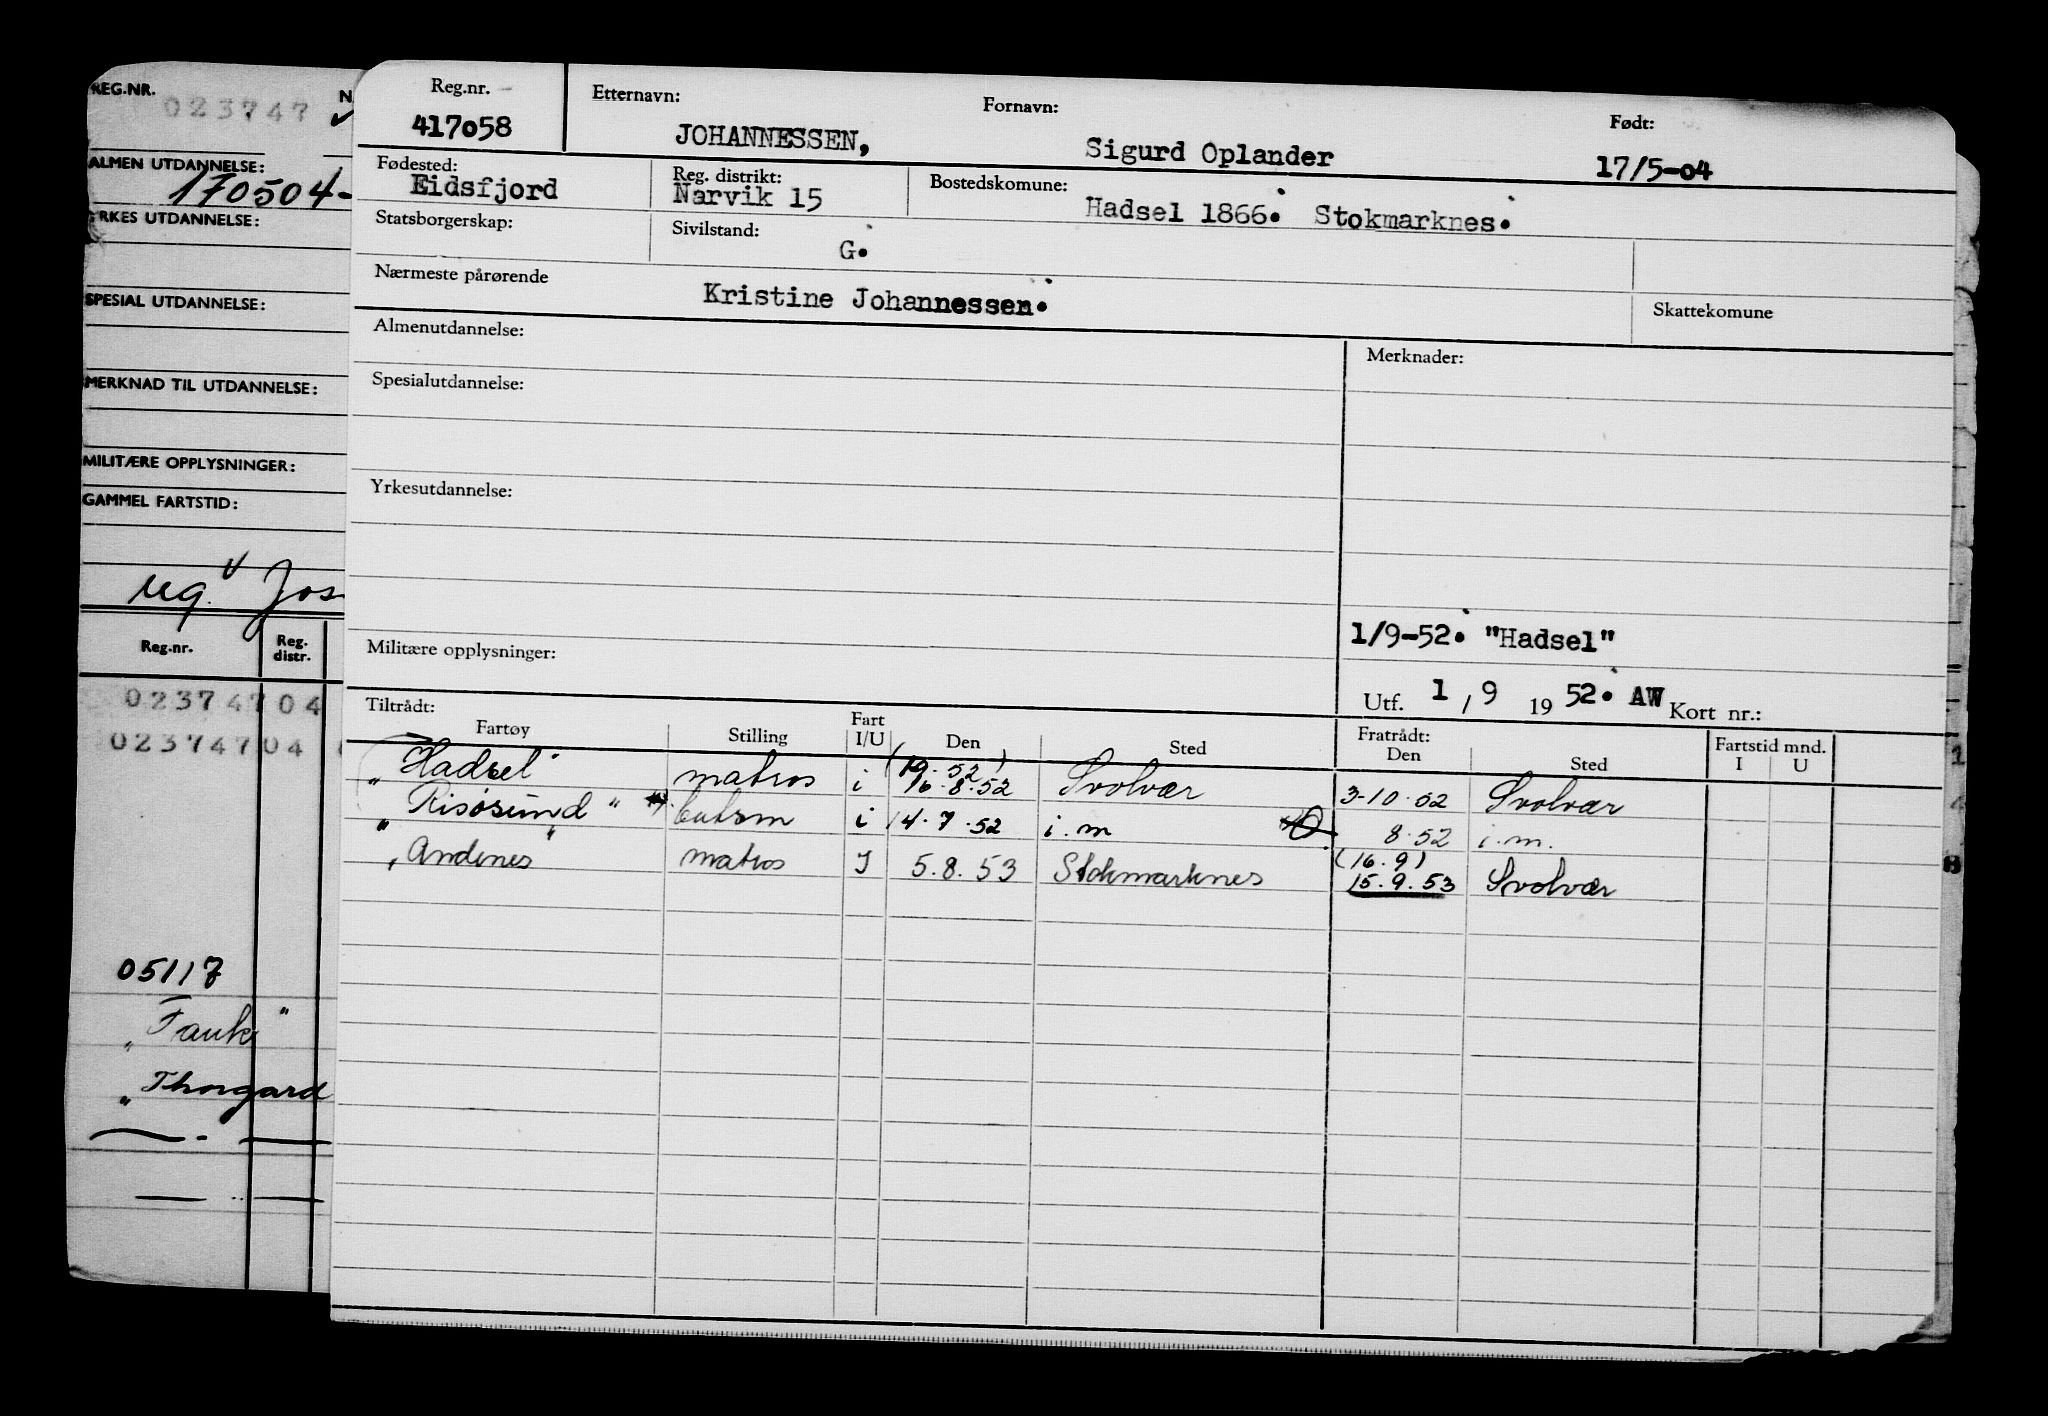 REG.NR.
023747
ALMEN UTDANNELSE:
170504-
YRKES UTDANNELSE:
SPESIAL UTDANNELSE:
MERKNAD TIL UTDANNELSE:
MILITÆRE OPPLYSNINGER:
GAMMEL FARTSTID:
Reg.nr. Reg. distr.
023747 04
023747 04
05117
"Thorgard
Reg.nr. Etternavn: Fornavn: Født:
417058 JOHANNESSEN, Sigurd Oplander 17/5-04
Fødested: Reg. distrikt: Bostedskomune:
Eidsfjord Narvik 15 Hadsel 1866. Stokmarknes.
Statsborgerskap: Sivilstand: G.
Nærmeste pårørende Kristine Johannessen. Skattekomune
Almenutdannelse: Merknader:
Spesialutdannelse:
Yrkesutdannelse:
1/9-52. "Hadsel"
Militære opplysninger:
Utf. 1 / 9 19 52. AW Kort nr.:
Tiltrådt: Fratrådt: Fartstid mnd.
Fartøy Stilling Fart I/U Den Sted Den Sted I U
"Hadsel" matros i 16.8.52 Svolvær 3-10.52 Svolvær
"Risøsund" i 14.7.52 i.m 8.52 i.m.
(16.9)
"Andenes" matros I 5.8.53 Stokmarknes 15.9.53 Svolvær